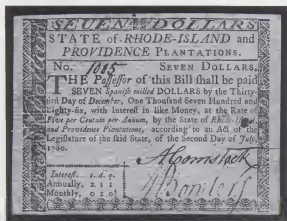 SEVEN DOLLARS
STATE of RHODE-ISLAND and
PROVIDENCE PLANTATIONS.
No. 1085 SEVEN DOLLARS.
THE Possessor of this Bill shall be paid
SEVEN Spanish milled DOLLARS by the Thirty-
first Day of December, One Thousand Seven Hundred and
Eighty-six, with Interest in like Money, at the Rate of
Five per Centum per Annum, by the State of Rhode-Island
and Providence Plantations, according to an Act of the
Legislature of the said State, of the Second Day of July,
1780.
A Comstock
Interest. s. d. q.
Annually, 2 1 1
Monthly, 0 2 0